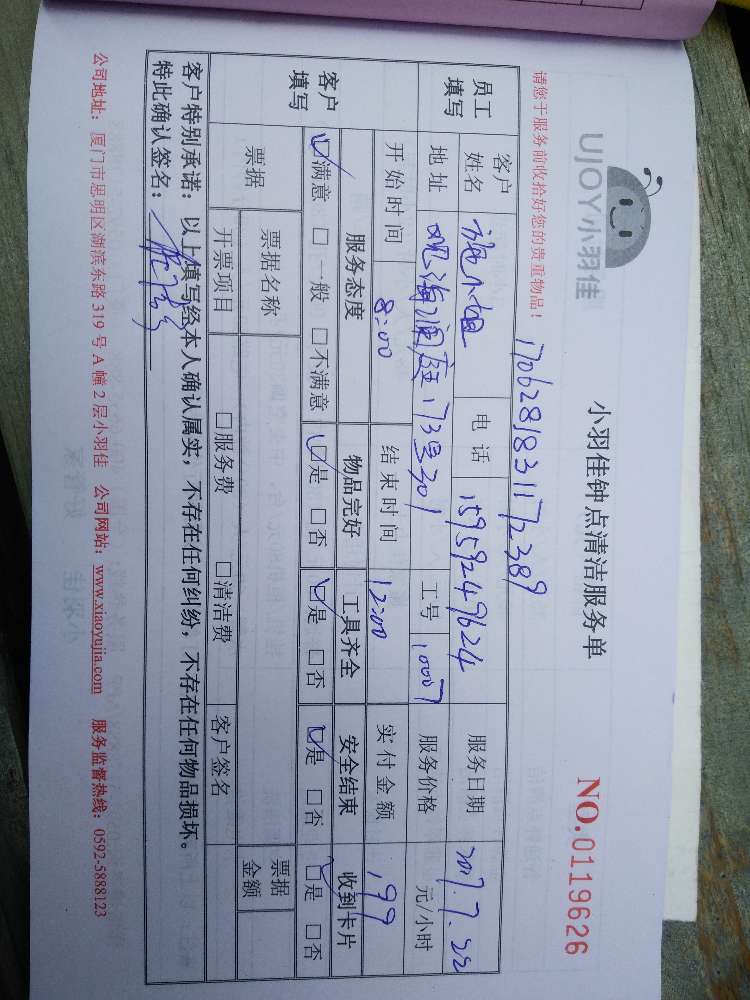 UJOY小羽佳
小羽佳钟点清洁服务单
NO.0119626
请您于服务前收拾好您的贵重物品！
1706281831172389
员工填写
客户姓名 施小姐 电话 15959249624 服务日期 2017.7.22
地址 观海澜庭173号301 工号 10007 服务价格 元/小时
开始时间 8:00 结束时间 12:00 实付金额 199
客户填写
服务态度 物品完好 工具齐全 安全结束 收到卡片
☑满意 □一般 □不满意 ☑是 □否 ☑是 □否 ☑是 □否 ☑是 □否
票据 票据名称 票据金额
开票项目 □服务费 □清洁费 客户签名
客户特别承诺：以上填写经本人确认属实，不存在任何纠纷，不存在任何物品损坏。
特此确认签名：
公司地址：厦门市思明区湖滨东路319号A幢2层小羽佳 公司网站：www.xiaoyujia.com 服务监督热线：0592-5888123